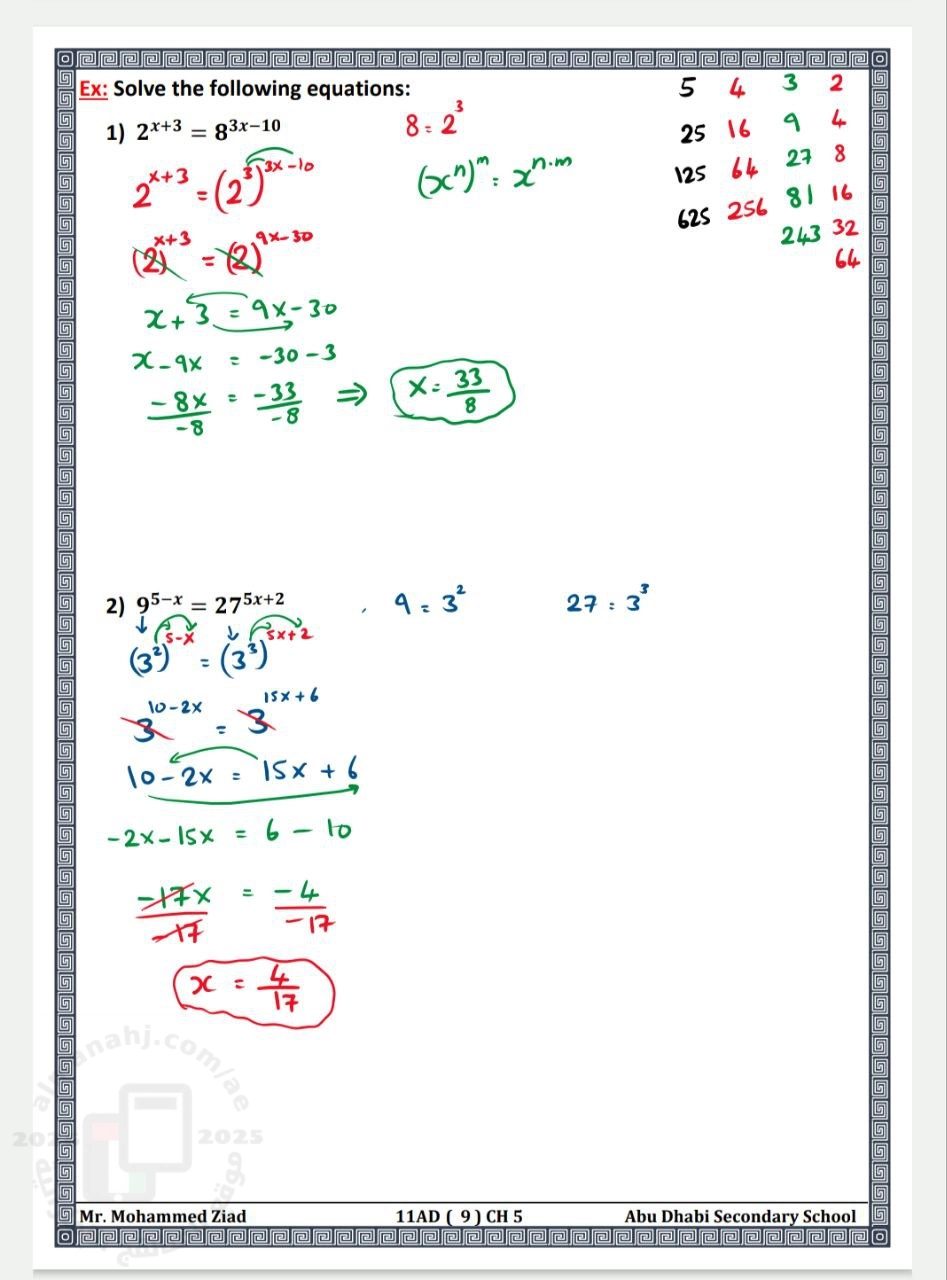 Ex: Solve the following equations:
5 4 3 2
25 16 9 4
125 64 27 8
625 256 81 16
243 32
64
1) 2^{x+3} = 8^{3x−10}
8 = 2^3
2^{x+3} = (2^3)^{3x-10}
(x^n)^m = x^{n·m}
(2)^{x+3} = (2)^{9x-30}
x + 3 = 9x - 30
x - 9x = -30 - 3
-8x/-8 = -33/-8 ⇒ x = 33/8
2) 9^{5−x} = 27^{5x+2}
9 = 3^2
27 = 3^3
(3^2)^{5-x} = (3^3)^{5x+2}
3^{10-2x} = 3^{15x+6}
10 - 2x = 15x + 6
-2x - 15x = 6 - 10
-17x/-17 = -4/-17
x = 4/17
almanahj.com/ae
2025
Mr. Mohammed Ziad
11AD ( 9 ) CH 5
Abu Dhabi Secondary School